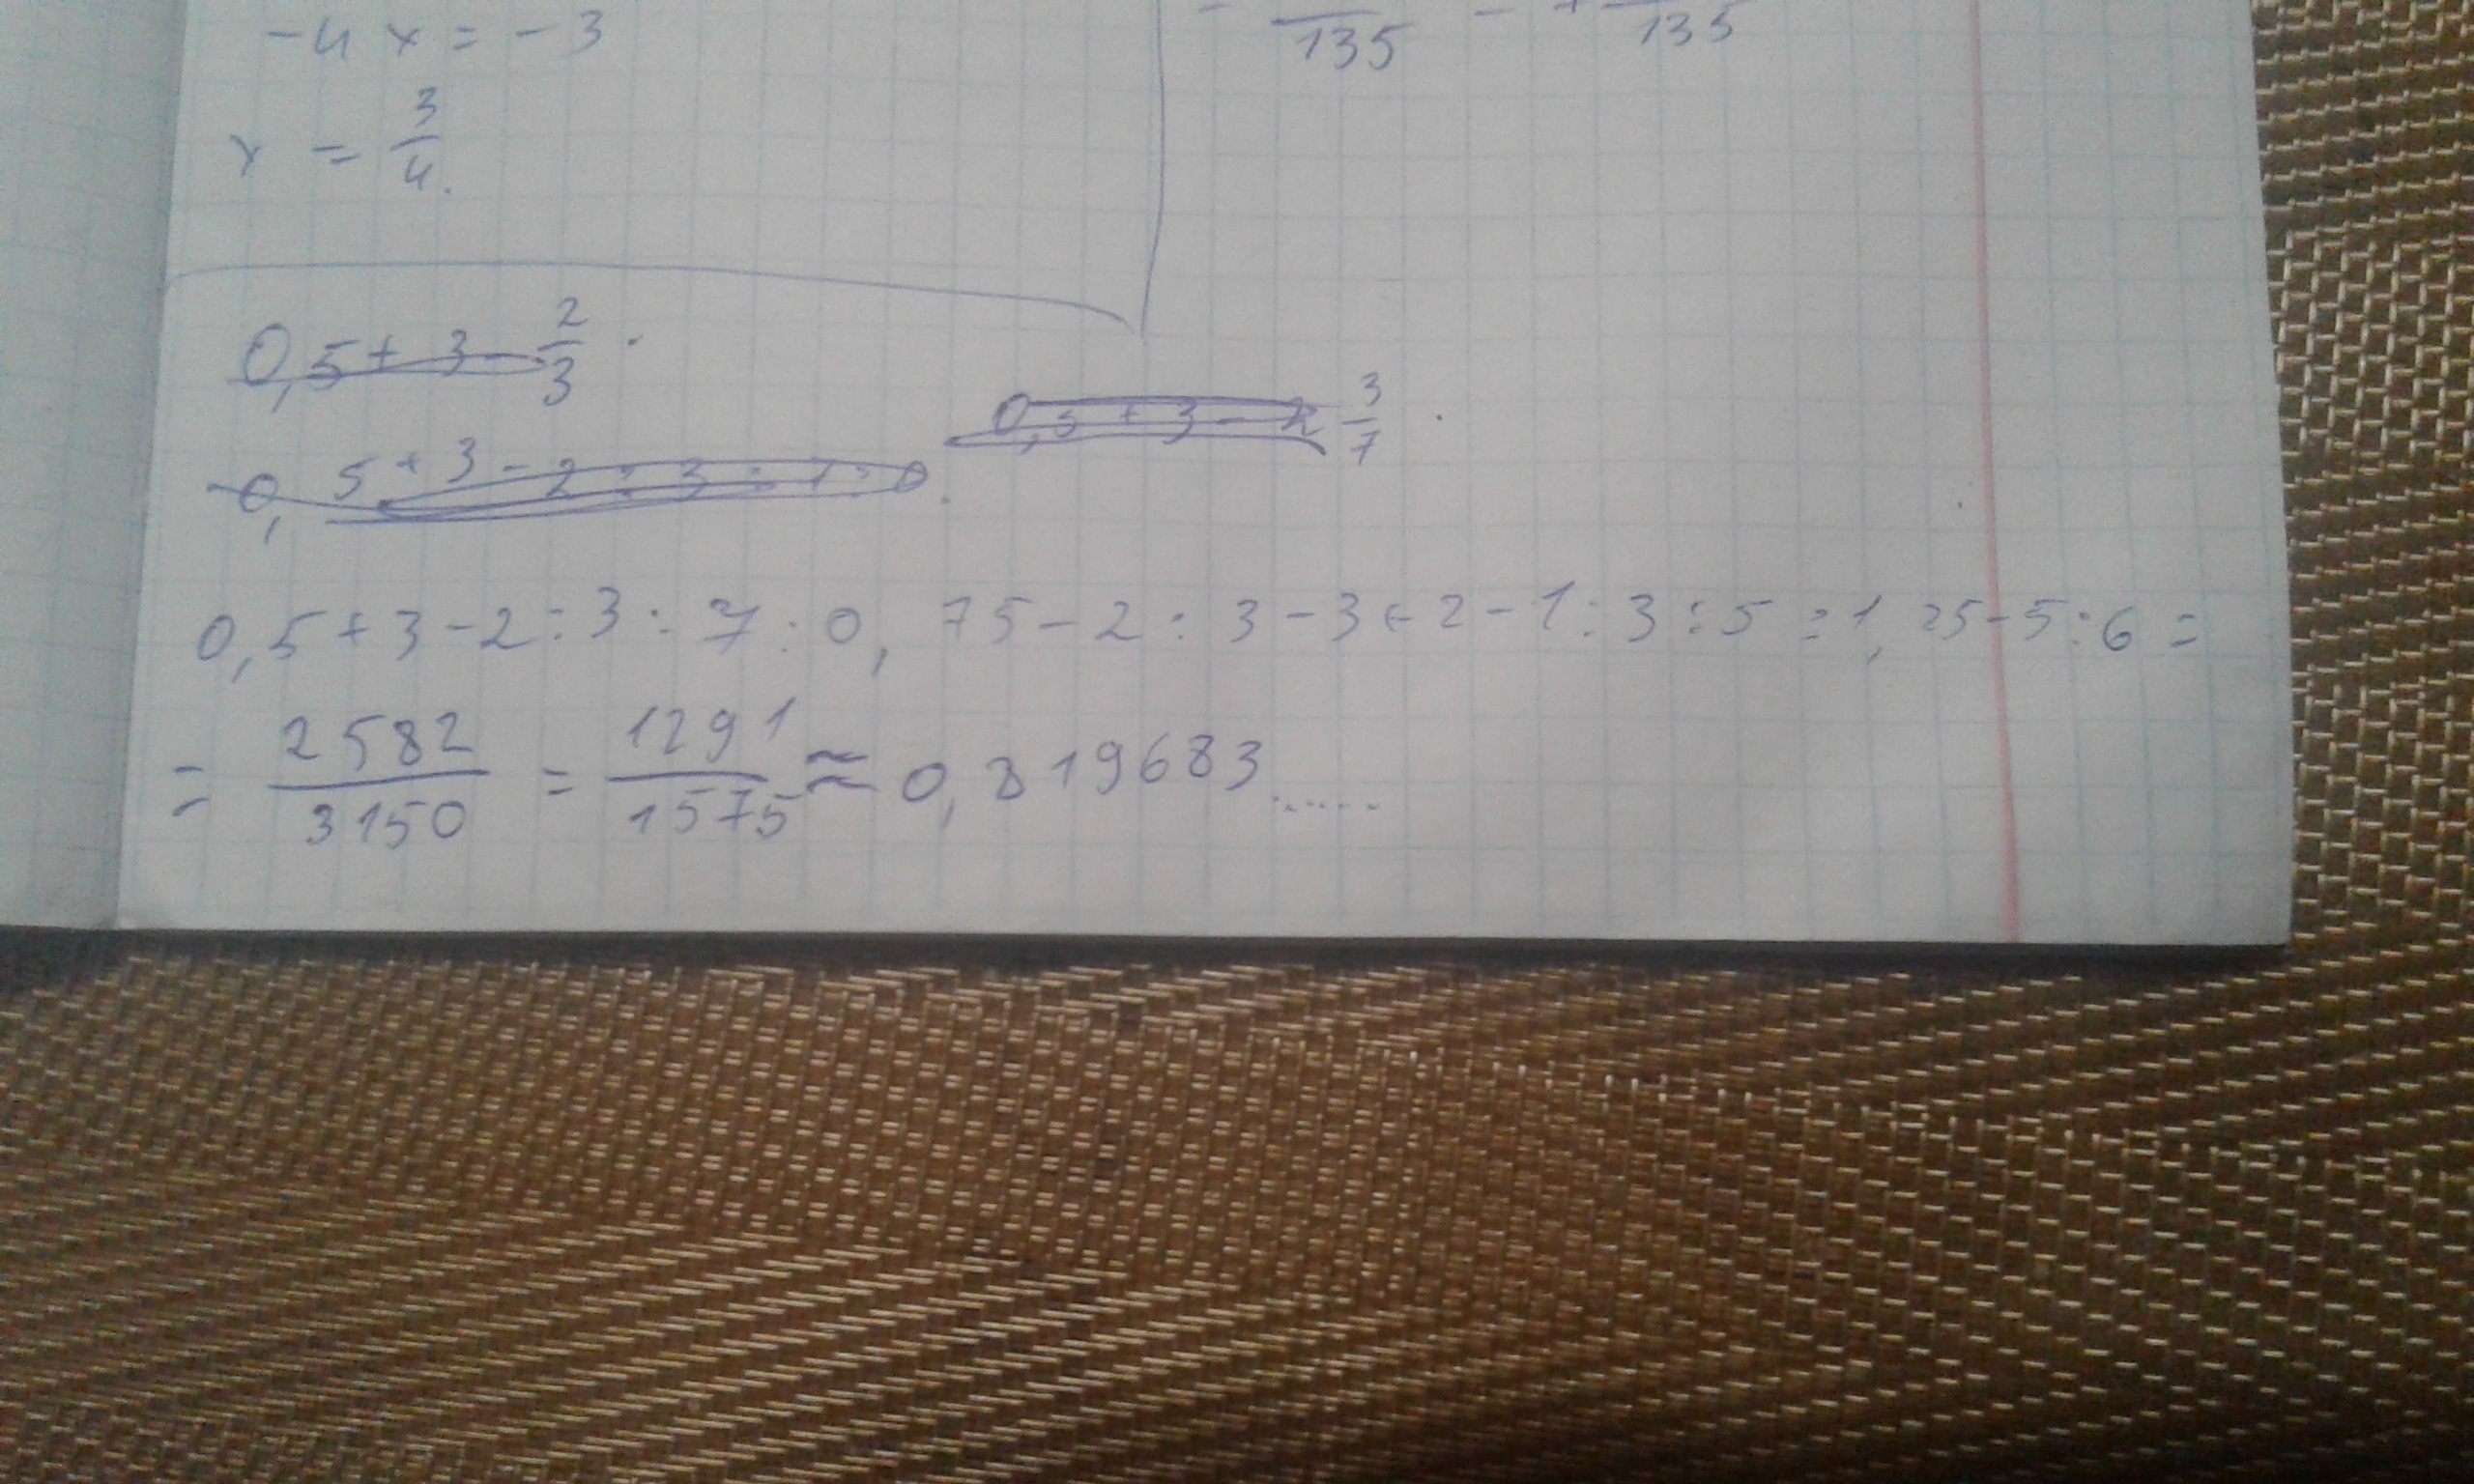 -4x = -3
135 - + 135
x = 3/4.
0,5 + 3 - 2/3 .
0,5 + 3 - 2 3/7 .
0, 5 + 3 - 2 : 3 : 7 : 0 .
0,5 + 3 - 2 : 3 : 7 : 0, 75 - 2 : 3 - 3 + 2 - 1 : 3 : 5 : 1, 25 - 5 : 6 =
= 2582/3150 = 1291/1575 ≈ 0,819683......